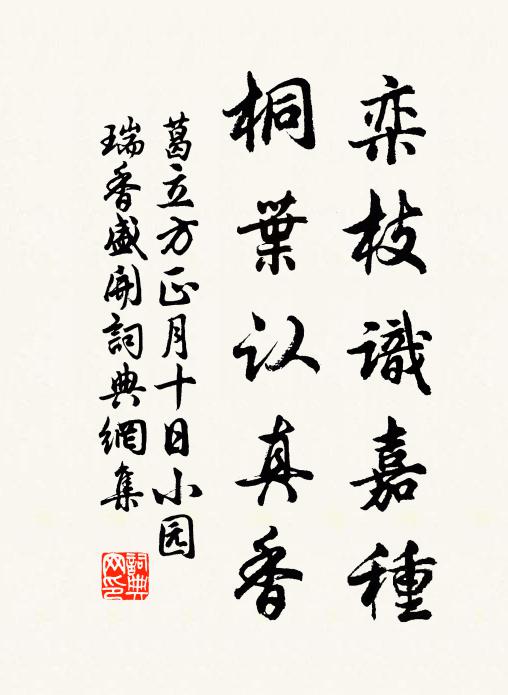 栾枝識嘉種
桐葉认真香
葛立方正月十日小园
瑞香盛開詞典網集
詞典
网印